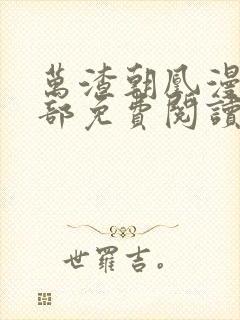 萬渣朝凰漫
部免費閱讀
世羅吉。